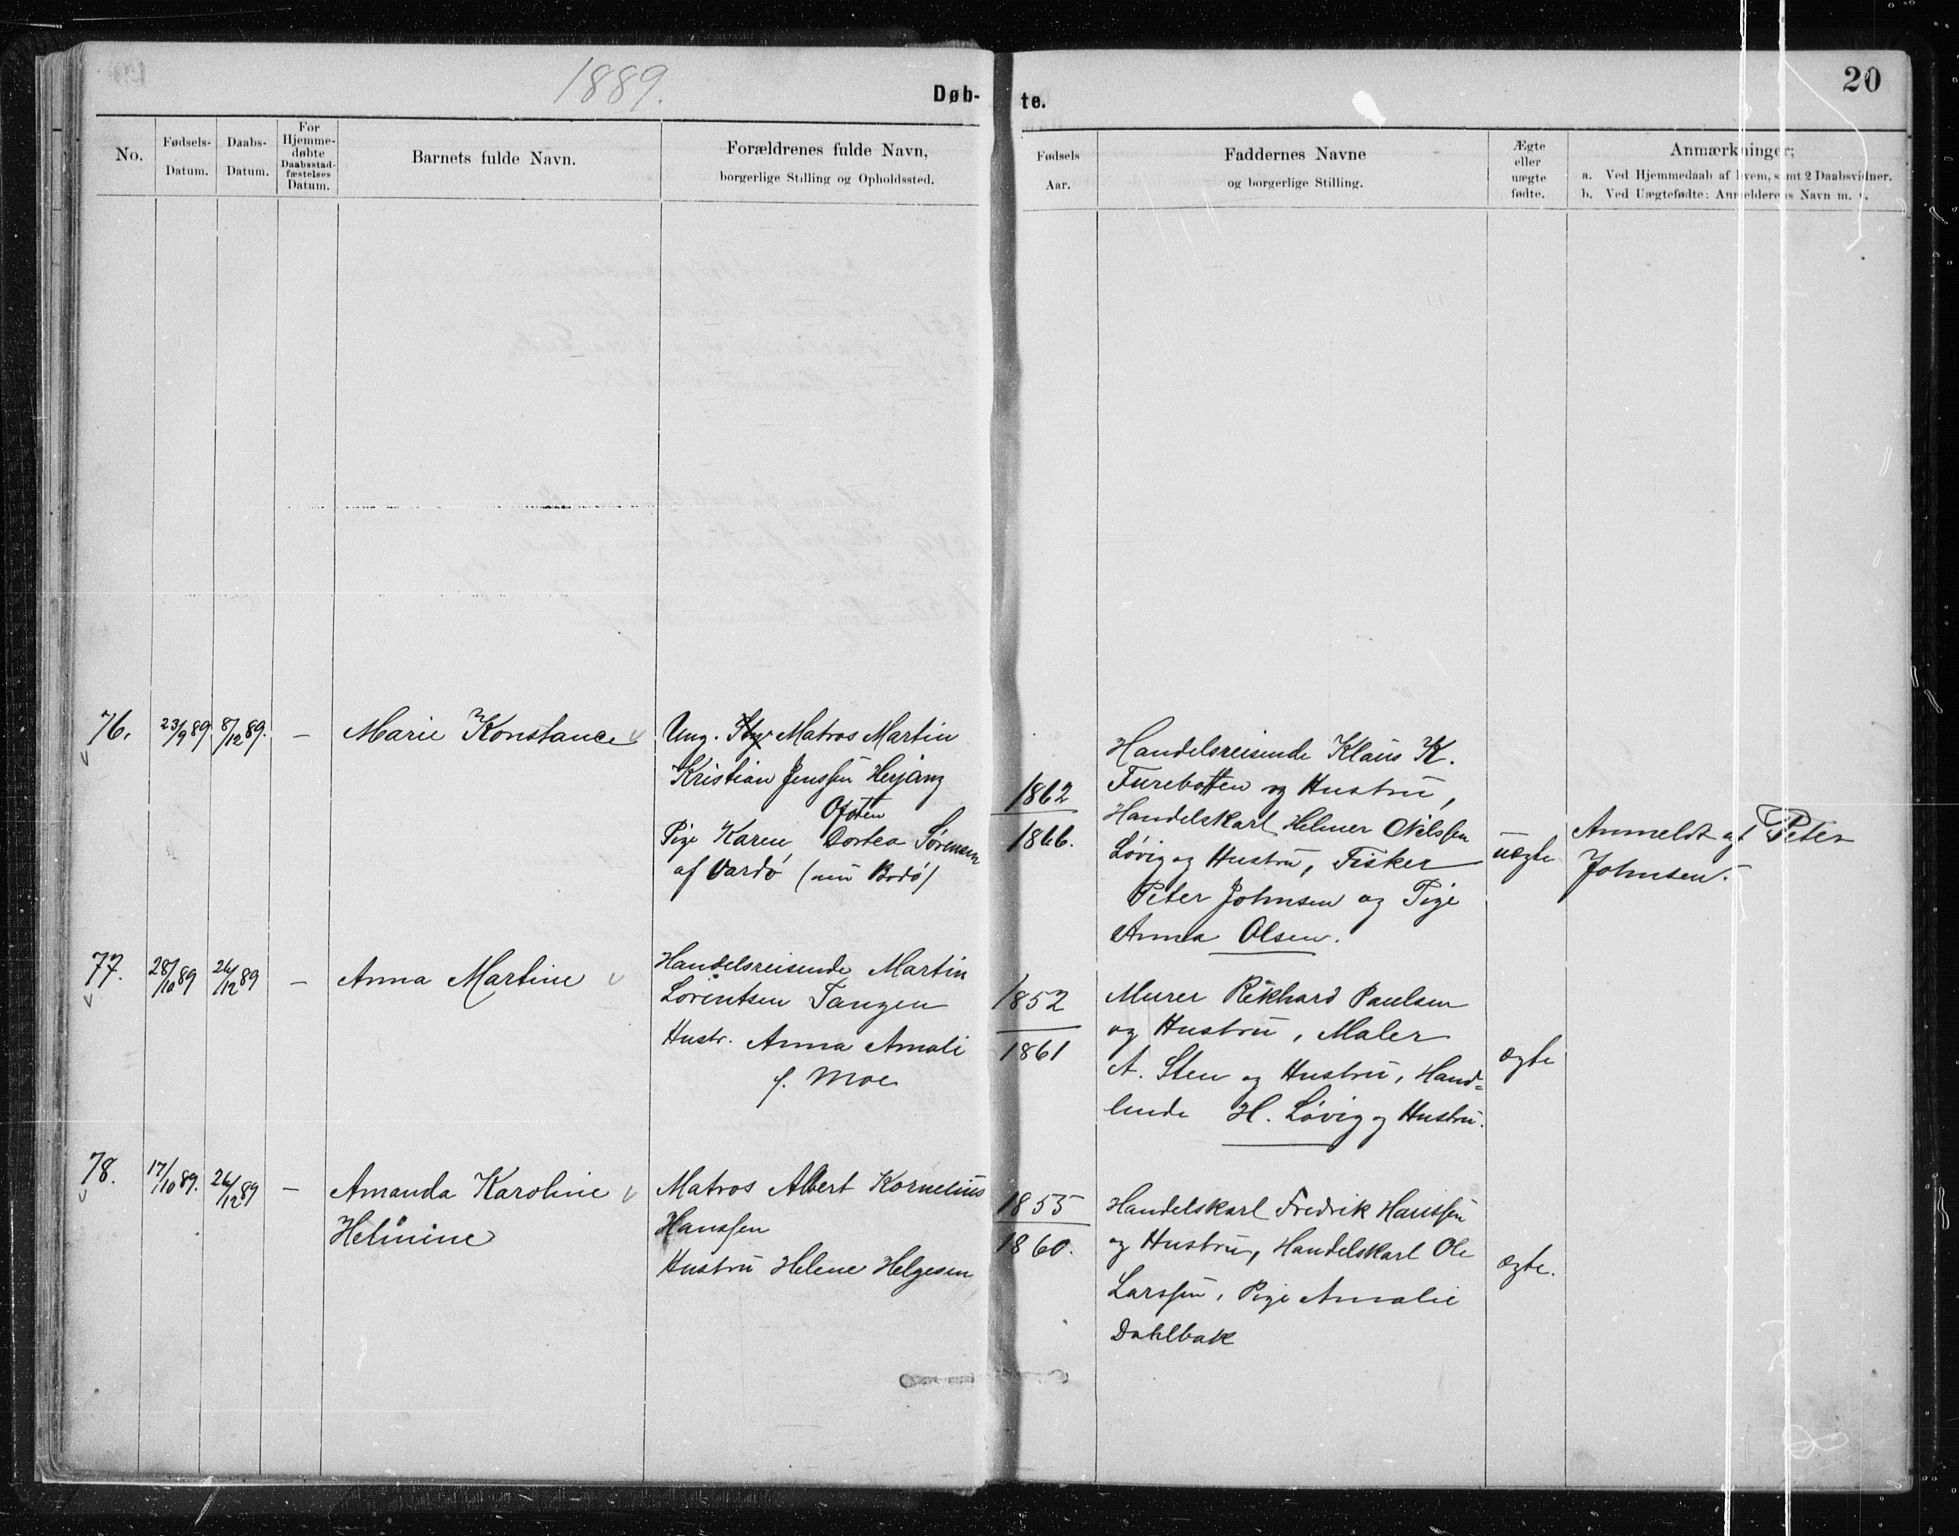 1889.
Døb-
te.
20
No.
Fødsels-
Datum.
Daabs-
Datum.
For
Hjemme-
døbte
Daabsstad-
fæstelses
Datum.
Barnets fulde Navn.
Forældrenes fulde Navn,
borgerlige Stilling og Opholdssted.
Fødsels
Aar.
Faddernes Navne
og borgerlige Stilling.
Ægte
eller
uægte
fødte.
Anmærkninger;
a. Ved Hjemmedaab af hvem, samt 2 Daabsvidner.
b. Ved Uægtefødte: Anmelderens Navn m. v.
76.
23/9 89
8/12 89.
—
Marie Konstance
Ung. Matros Martin
Kristian Jenssen Herjang
Ofoten
Pige Karen Dortea Sørensen
af Vardø (nu Bodø)
1862
1866.
Handelsreisende Klaus K.
Furebotten og Hustru,
Handelskarl Helmer Nilssen
Løvig og Hustru, Fisker
Peter Johnsen og Pige
Anna Olsen.
uægte
Anmeldt af Peter
Johnsen.
77.
28/10 89
26/12 89
—
Anna Martine
Handelsreisende Martin
Lorentsen Tangen
Hustr. Anna Amali
f. Moe
1852
1861
Murer Rikhard Paulsen
og Hustru, Maler
A. Sten og Hustru, Hand=
lende H. Løvig og Hustru.
ægte
78.
17/10 89.
26/12 89
—
Amanda Karoline
Helmine
Matros Albert Kornelius
Hanssen
Hustru Helene Helgesen
1855
1860.
Handelskarl Fredrik Hanssen
og Hustru, Handelskarl Ole
Larssen, Pige Amalie
Dahlbak
ægte.